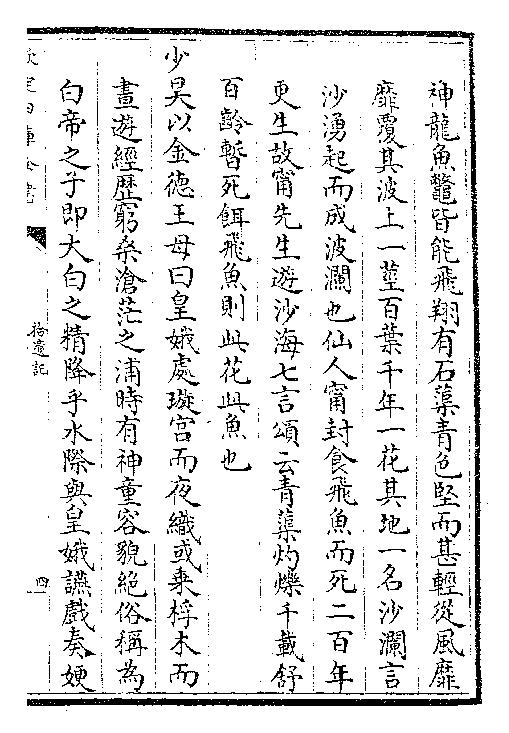 神龍魚鼈皆能飛翔有石蕖青色堅而甚輕從風靡
靡覆其波上一莖百葉千年一花其地一名沙瀾言
沙湧起而成波瀾也仙人甯封食飛魚而死二百年
更生故甯先生遊沙海七言頌云青蕖灼爍千載舒
百齡暫死餌飛魚則此花此魚也
少昊以金德王母曰皇娥處璇宮而夜織或乗桴木而
晝遊經歴窮桑滄茫之浦時有神童容貌絶俗稱為
白帝之子即太白之精降乎水際與皇娥讌戲奏㛹
欽定四庫全書
拾遺記
四